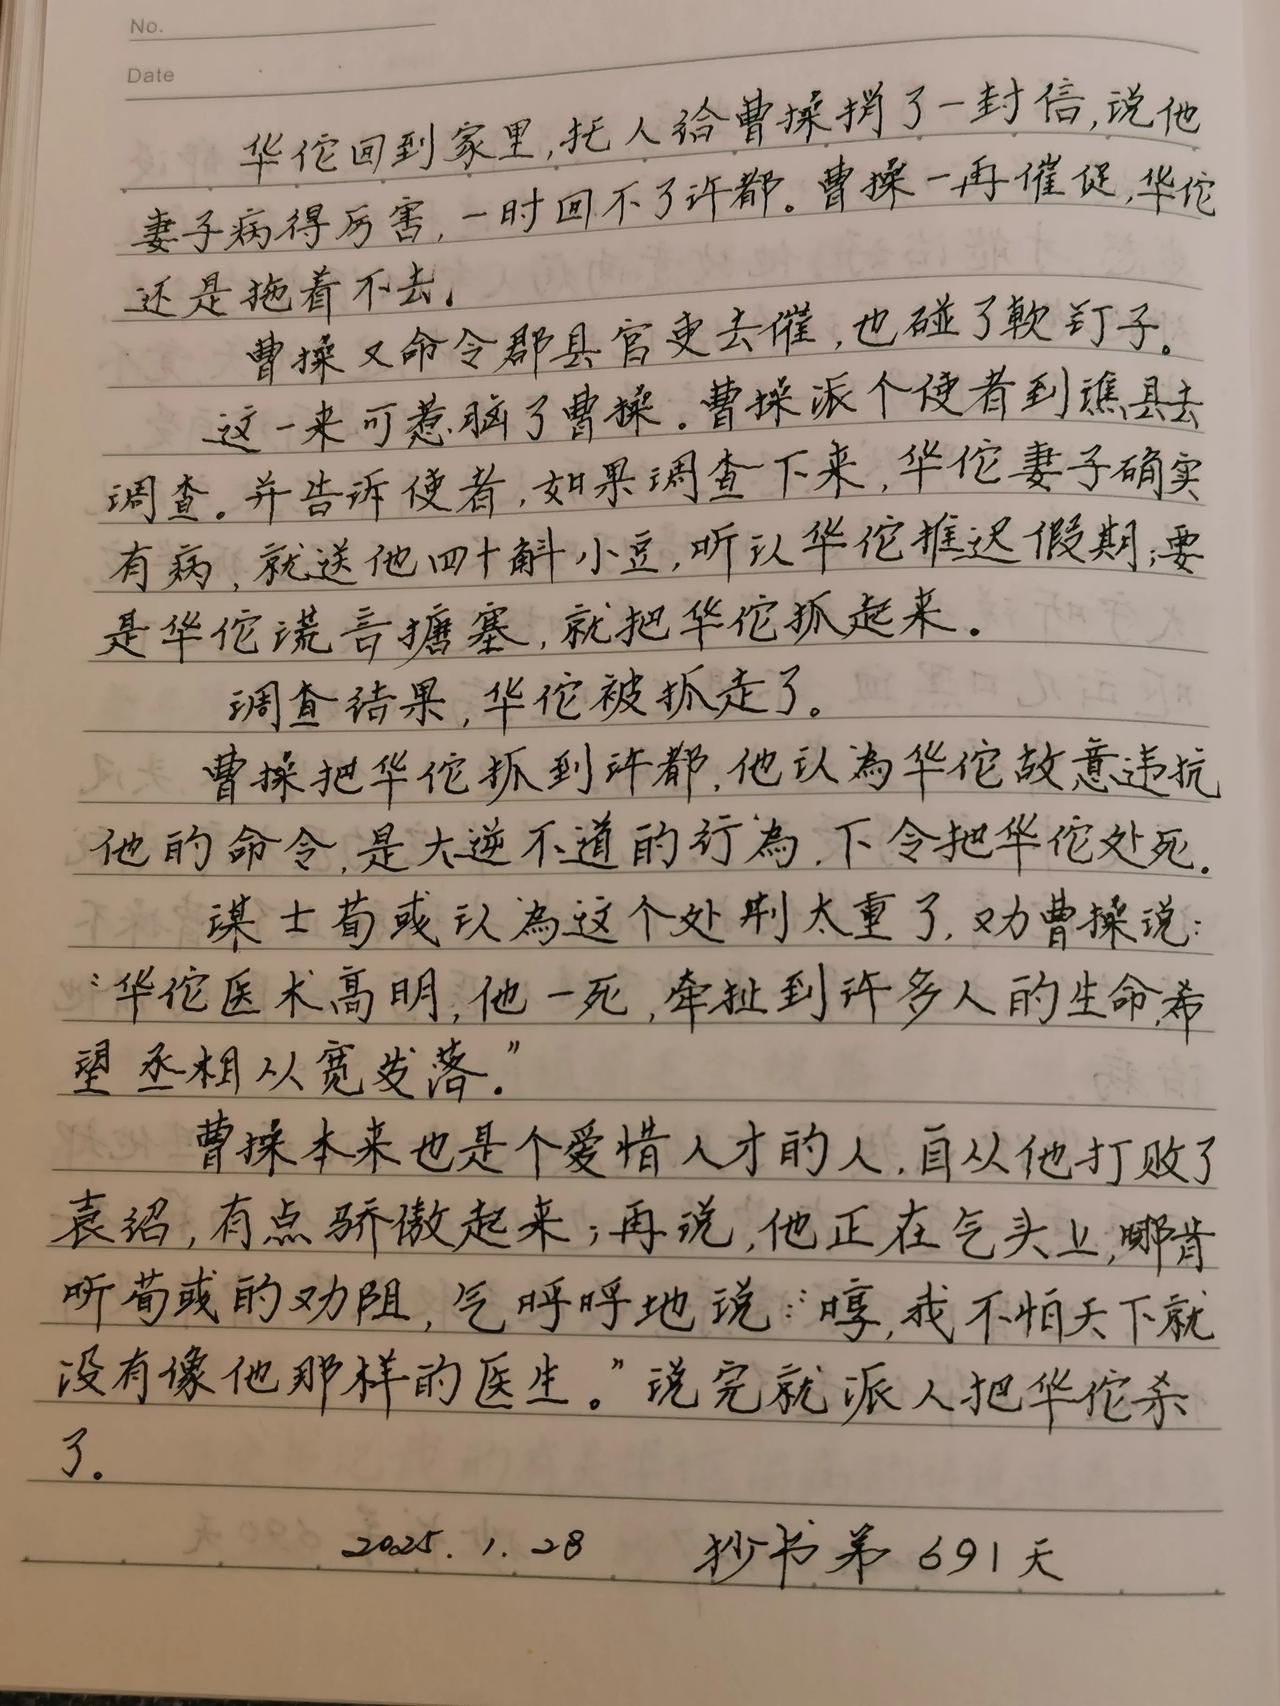 No.
Date
华佗回到家里,托人给曹操捎了一封信,说他
妻子病得厉害,一时回不了许都。曹操一再催促,华佗
还是拖着不去。
曹操又命令郡县官吏去催,也碰了軟钉子。
这一来可惹脑了曹操。曹操派个使者到谯县去
调查。并告诉使者,如果调查下来,华佗妻子确实
有病,就送他四十斛小豆,听以华佗推迟假期;要
是华佗谎言搪塞,就把华佗抓起来。
调查结果,华佗被抓走了。
曹操把华佗抓到许都,他认為华佗故意违抗
他的命令,是大逆不道的行為,下令把华佗处死。
谋士荀或认為这个处刑太重了,劝曹操说:
“华佗医术高明,他一死,牵扯到许多人的生命,希
望丞相从宽发落。”
曹操本来也是个爱惜人才的人,自从他打败了
袁绍,有点骄傲起来;再说,他正在气头上,哪肯
听荀或的劝阻,气呼呼地说:“哼,我不怕天下就
没有像他那样的医生。”说完就派人把华佗杀
了。
2025.1.28 抄书第691天